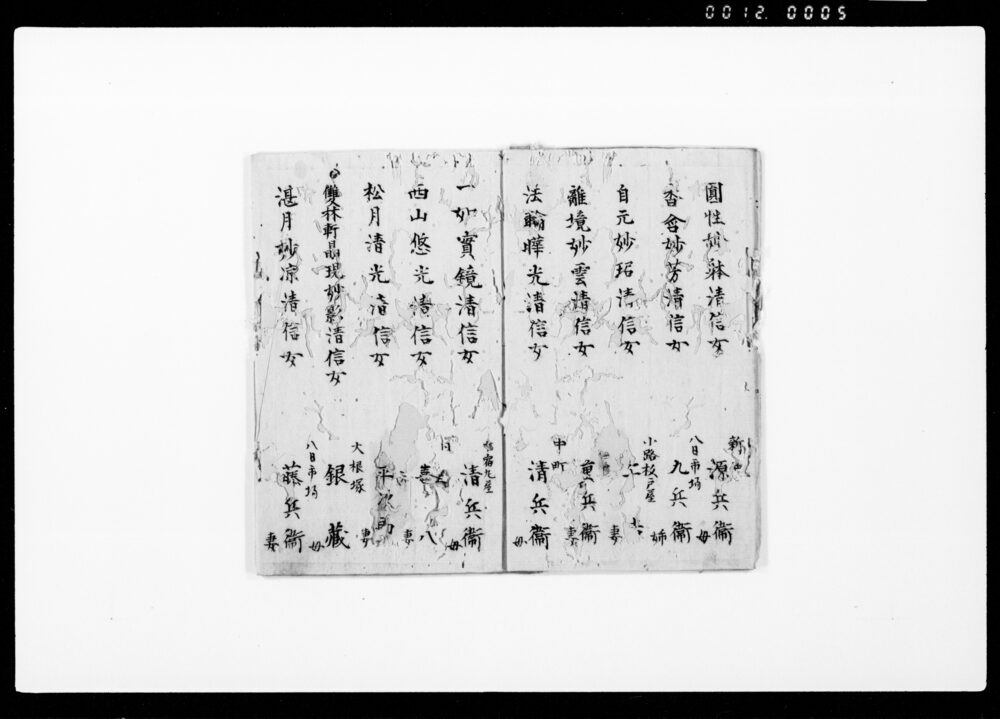 0012. 0005
圓性妙躰清信女
新
源兵衞
母
香含妙芳清信女
八日市場
九兵衞
姉
自元妙珆清信女
小路板戸屋
妻
離境妙雲清信女
重兵衞
妻
法輪曄光清信女
中町
清兵衞
母
一如實鏡清信女
清兵衞
母
西山悠光清信女
同
喜八
妻
松月清光清信女
平次助
妻
雙林軒晶現妙影清信女
大根塚
銀藏
母
湛月妙凉清信女
八日市場
藤兵衞
妻